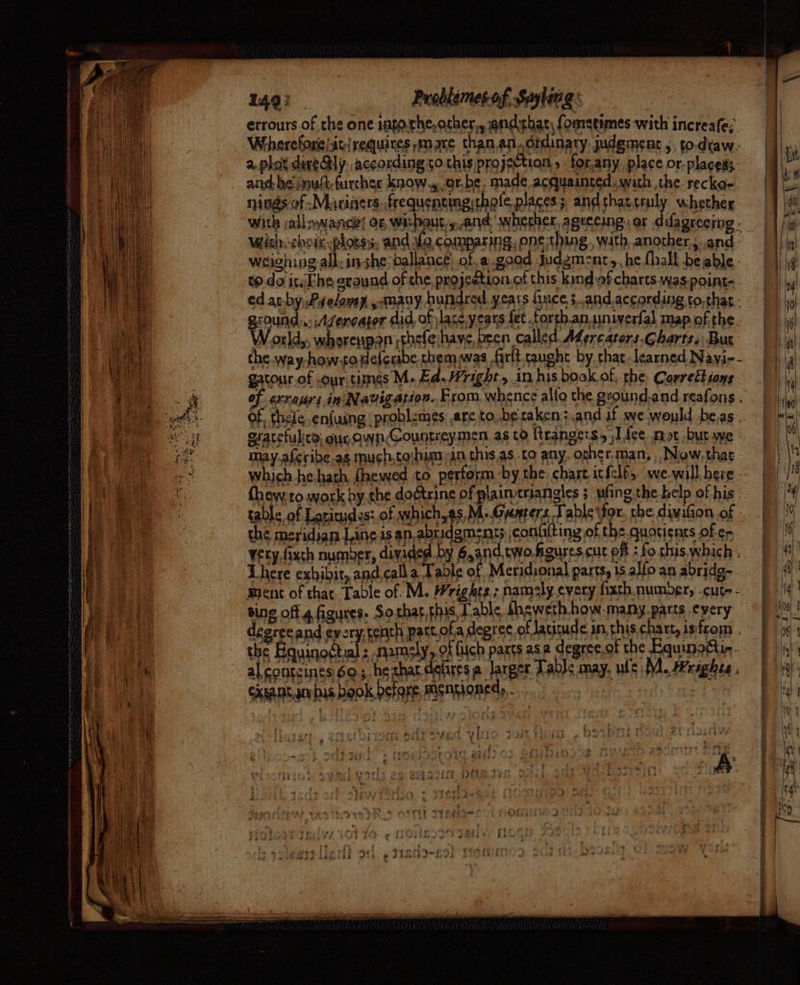 140 Problemes of Sayling
errours of the one into the other, and that, sometimes with increase;
Wherefore it requires more than an ordinary judgment, to draw
a plat directly according to this projection, for any place or places;
and he must further know, or be made acquainted with the recko-
nings of Mariners frequenting those places; and that truly whether
with allowance or without, and whether agreeing or disagreeing
with their plots; and so comparing one thing with another, and
weighing all in the ballance of a good judgment, he shall be able
to do it. The ground of the projection of this kind of charts was point-
ed at by Ptolomy, many hundred years since; and according to that
ground, Mercator did of late years set forth an universal map of the
World, whereupon these have been called Mercators Charts. But
the way how to describe them was first taught by that learned Navi-
gatour of our times M. Ed. Wright, in his book of the Corrections
of errours in Navigation. From whence also the ground and reasons
of these ensuing problemes are to be taken: and if we would be as
gratefull to our own Countreymen as to strangers, I see not but we
may ascribe as much to him in this as to any other man. Now that
which he hath shewed to perform by the chart it self, we will here
shew to work by the doctrine of plain triangles; using the help of his
table of Latitudes: of which, as M. Gunters Table for the division of
the meridian Line is an abridgment; consisting of the quotients of e-
very sixth number, divided by 6, and two figures cut off: so this which
I here exhibit, and call a Table of Meridional parts, is also an abridg-
ment of that Table of M. Wrights; namely every sixth number, cut-
ting off 4 figures. So that this Table sheweth how many parts every
degree and every tenth part of a degree of latitude in this chart, is from
the Equinoctial: namely, of such parts as a degree of the Equinocti-
al conteines 60; he that desires a larger Table may use M. Wrights
extant in his book before mentioned.
A